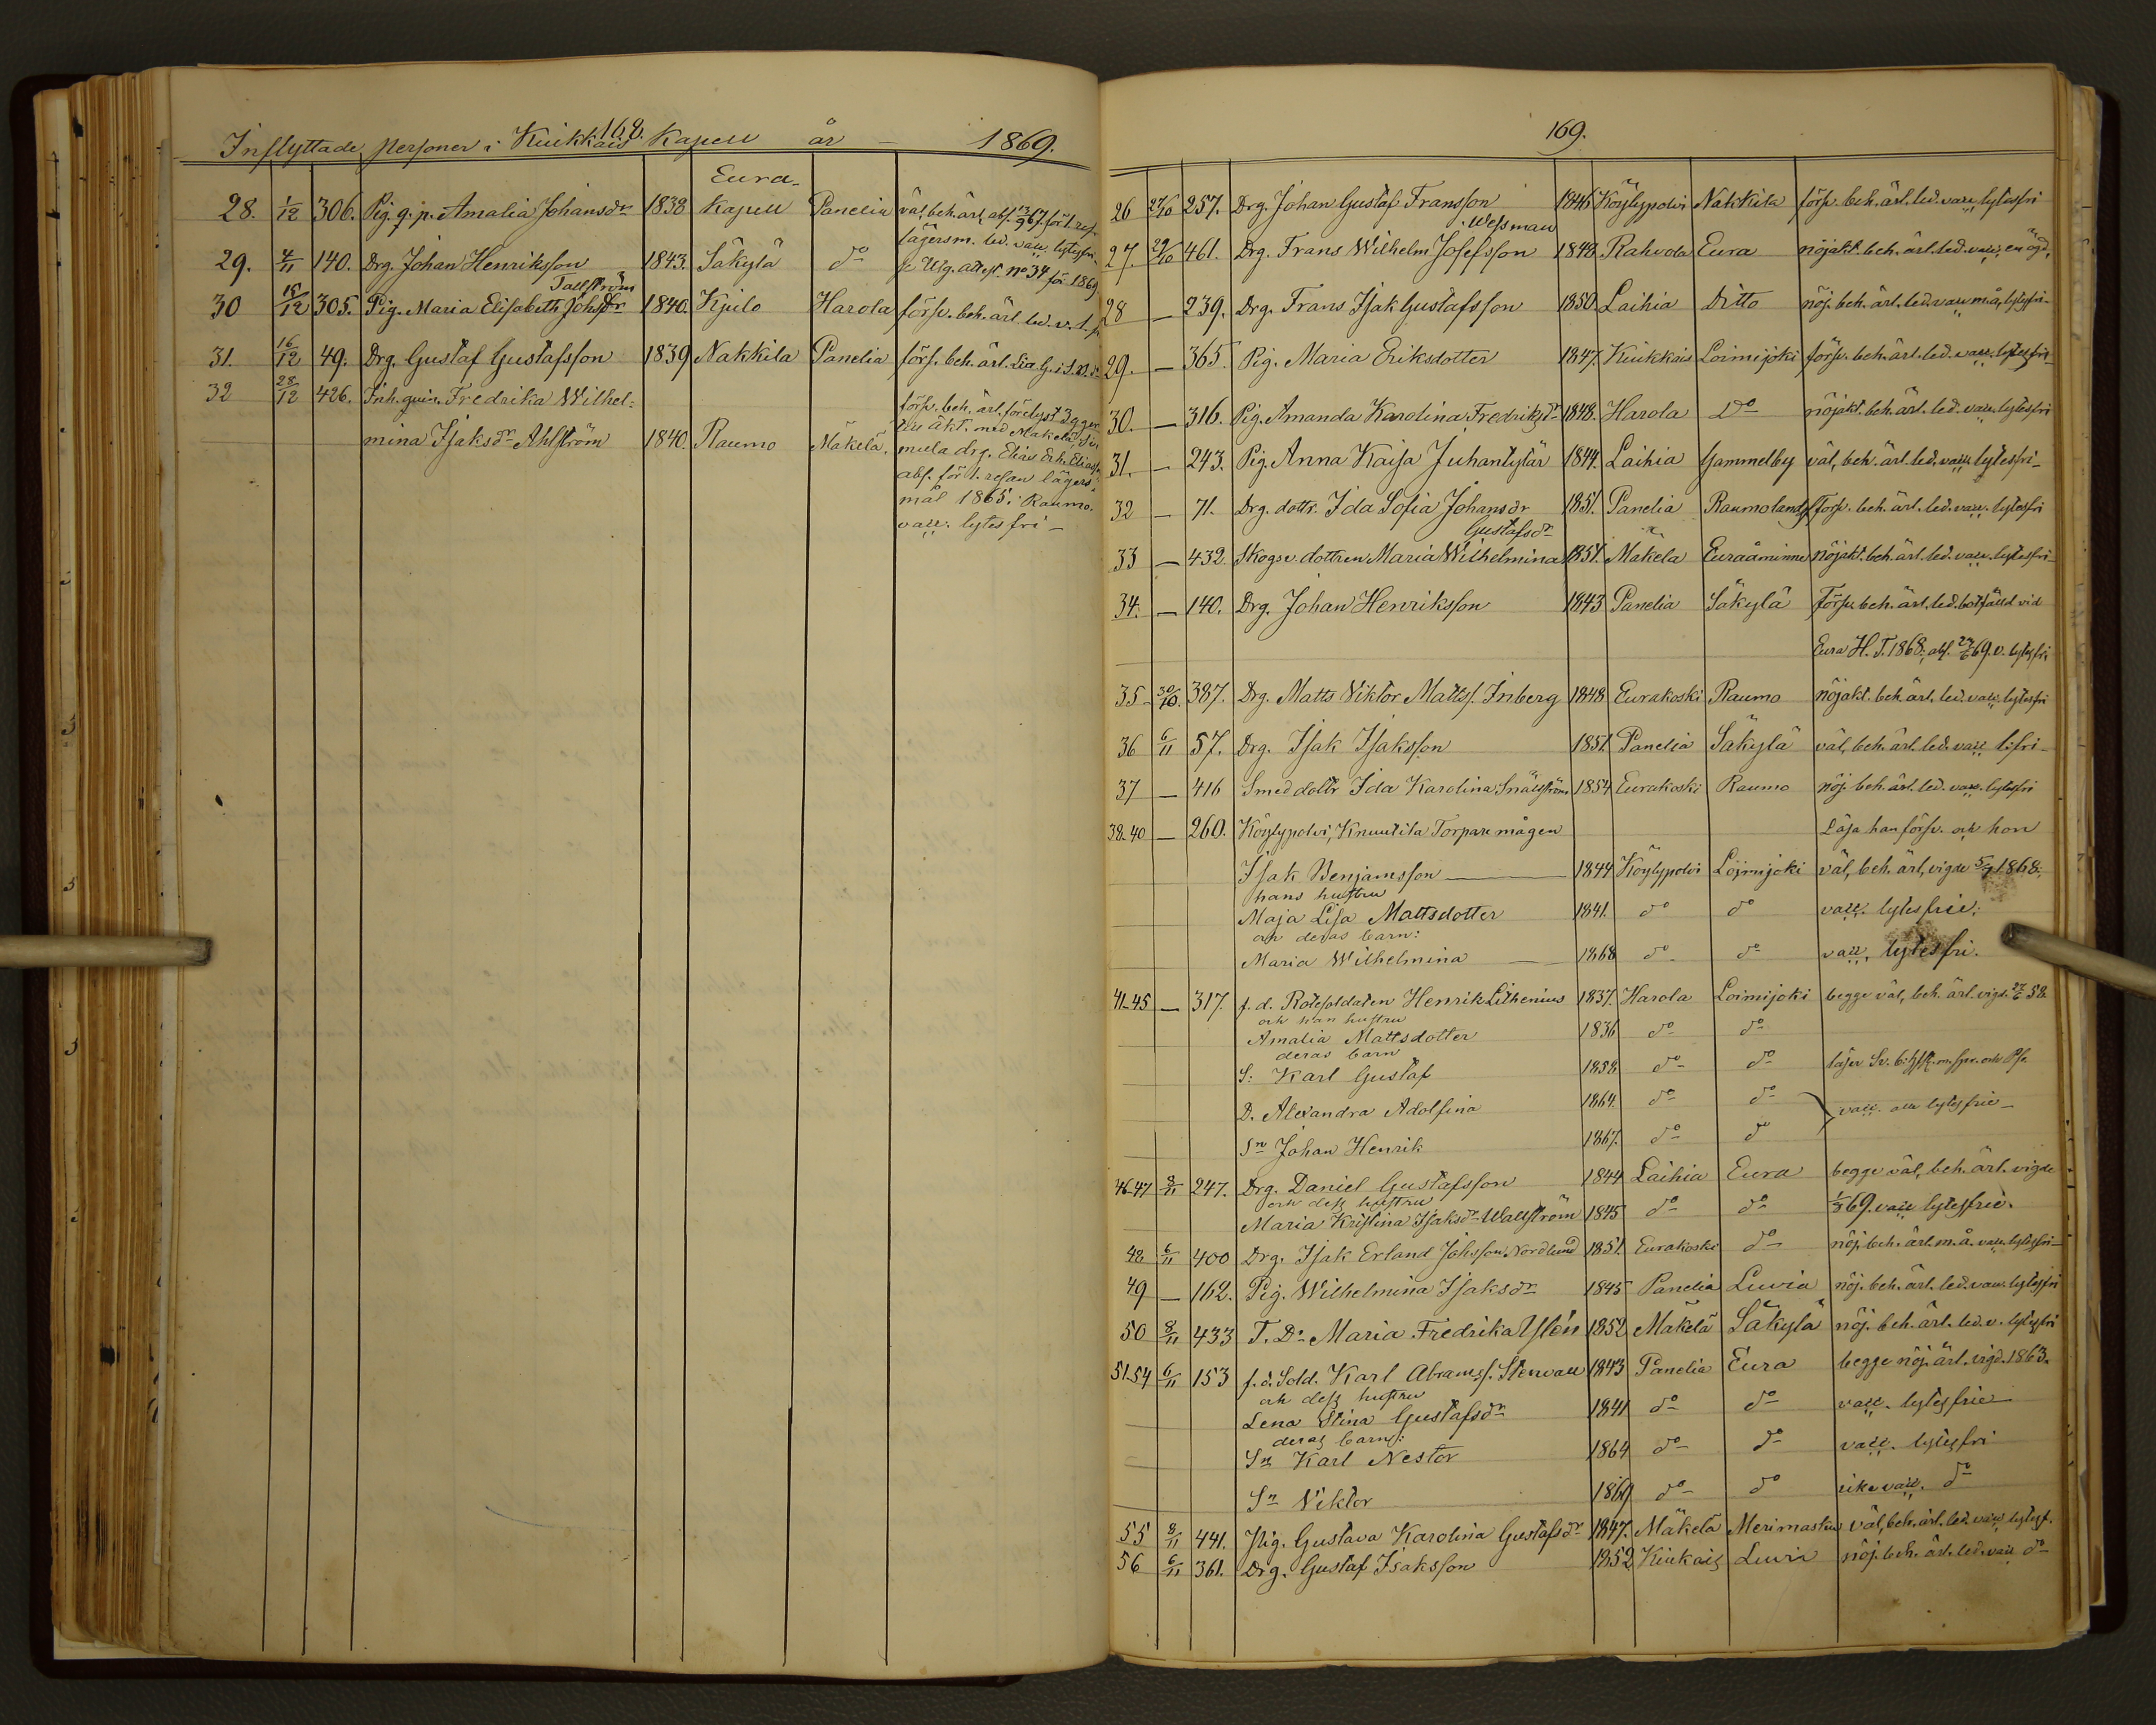 168.
Inflyttade personer i Kiukkais Kapell år – 1869.
28. 1/12 306. Pig. q. p. Amalia Johansdr 1838 Eura Kapell Panelia väl, beh. ärl. abs. 12/9 67 för 1. res.
lägersm. led. vacc. lytesfri
29. 4/11 140. Drg. Johan Henriksson 1843. Säkylä do se Utg. attest. No 34 för 1869
Tallström
30 15/12 305. Pig. Maria Elisabeth Johsdr 1840. Kjulo Harola försv. beh. ärl. led. v.
31. 16/12 49. Drg. Gustaf Gustafsson 1839 Nakkila Panelia förs. beh. ärl.
32 28/12 426. Inh. qvin. Fredrika Wilhel=
mina Isaksdr Ahlström 1840. Raumo Mäkelä.
försv. beh. ärl. förelyst 3 gger
till äkt. med Mäkelä,
mula drg. Elias Erh. Eliass.
abs. för 1. resan lägers=
mål 1865 i Raumo.
vacc. lytesfri –
169.
26 29/10 257. Drg. Johan Gustaf Fransson 1846 Köylypolvi Nakkila försv. beh. ärl. led. vacc. lytesfri
Wessman
27. 29/10 461. Drg. Frans Wilhelm Josefsson 1848 Rahvola Eura nöjakt. beh. ärl. led. vacc. enögd,
28 – 239. Drg. Frans Isak Gustafsson 1850 Laihia Ditto nöj. beh. ärl. led. vacc. m. å. lytesfri –
29. – 365. Pig. Maria Eriksdotter 1847. Kiukkais Loimijoki försv. beh. ärl. led. vacc. lytesfri –
30. – 316. Pig. Amanda Karolina Fredriksdr 1848. Harola Do nöjakt. beh. ärl. led. vacc. lytesfri
31. – 243. Pig. Anna Kaisa Juhantytär 1844. Laihia Gammelby väl, beh. ärl. led. vacc. lytesfri –
32 – 71. Drg. dottr. Ida Sofia Johansdr 1851. Panelia Raumo lands försv. beh. ärl. led. vacc. lytesfri
Gustafsdr
33 – 432. Skogsv. dottren Maria Wilhelmina 1851. Mäkelä Euraåminne nöjakt. beh. ärl. led. vacc. lytesfri –
34. – 140. Drg. Johan Henriksson 1843 Panelia Säkylä Försv. beh. ärl. led. botfälld vid
Eura H. T. 1868; abs. 27/6 69. v. lytesfri
35 30/10. 387. Drg. Matts Viktor Mattss. Inberg 1848 Eurakoski Raumo nöjakt. beh. ärl. led. vacc. lytesfri
36 6/11 57. Drg. Isak Isaksson 1851. Panelia Säkylä väl, beh. ärl. led. vacc. l. fri –
37 – 416 Smed dottr Ida Karolina Snällström 1854 Eurakoski Raumo nöj. beh. ärl. led. vacc. lytesfri
38-40 – 260. Köylypolvi, Knuutila Torpare mågen Läsa han försv. och hon
Isak Benjamsson – 1844 Köylypolvi Loimijoki väl, beh. ärl, vigde 5/7 1868.
hans hustru
Maja Lisa Mattsdotter 1841. do do vacc. lytesfrie;
och deras barn:
Maria Wilhelmina – 1868 do do vacc. lytesfri.
41-45 – 317. f. d. Rotesoldaten Henrik Lithenius 1837. Harola Loimijoki begge väl, beh. ärl. vigd. 27/6 58.
och han hustru
Amalia Mattsdotter 1836 do do
deras barn
S: Karl Gustaf 1858. do do
D. Alexandra Adolfina 1864. do do vacc. alla lytesfrie –
Sn Johan Henrik 1867. do do
46-47 8/11 247. Drg. Daniel Gustafsson 1844 Laihia Eura begge väl, beh. ärl. vigde
och dess hustru
Maria Kristina Isaksdr Wallström 1845 do do 1/3 69. vacc lytesfrie.
48. 6/11 400 Drg. Isak Erland Johsson Nordlund 1851. Eurakoski do nöj. beh. ärl. m. å. vacc. lytesfri –
49 – 162. Pig. Wilhelmina Isaksdr 1845 Panelia Luvia nöj. beh. ärl. led. vacc. lytesfri
50 8/11 433 T. Dr Maria Fredrika Ylén 1852 Mäkelä Säkylä nöj. beh. ärl. led. v. lytesfri
51-54 6/11 153 f. d. Sold. Karl Abramss. Stenvall 1843 Panelia Eura begge nöj. ärl. vigd. 1863.
och dess hustru
Lena Stina Gustafsdr 1841 do do vacc. lytesfrie
deras barn:
Sn Karl Nestor 1864 do do vacc. lytesfri
Sn Viktor 1869 do do icke vacc. do
55 8/11 441. Pig. Gustava Karolina Gustafsdr 1847. Mäkelä Merimasku väl, beh. ärl. led. vacc. lytesf.
56 6/11 361. Drg. Gustaf Isaksson 1852 Kiukais Luvia nöj. beh. ärl. led. vacc do